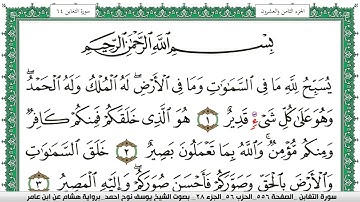 الجزء الثامن والعشرون
سورة التغابن ٦٤
بِسْمِ اللَّهِ الرَّحْمَٰنِ الرَّحِيمِ
يُسَبِّحُ لِلَّهِ مَا فِي السَّمَٰوَٰتِ وَمَا فِي الْأَرْضِ لَهُ الْمُلْكُ وَلَهُ الْحَمْدُ
وَهُوَ عَلَىٰ كُلِّ شَيْءٍ قَدِيرٌ ١ هُوَ الَّذِي خَلَقَكُمْ فَمِنكُمْ كَافِرٌ
وَمِنكُم مُّؤْمِنٌ وَاللَّهُ بِمَا تَعْمَلُونَ بَصِيرٌ ٢ خَلَقَ السَّمَٰوَٰتِ
وَالْأَرْضَ بِالْحَقِّ وَصَوَّرَكُمْ فَأَحْسَنَ صُوَرَكُمْ وَإِلَيْهِ الْمَصِيرُ ٣
سورة التغابن . الصفحة ٥٥٦ . الحزب ٥٦ . الجزء ٢٨ . بصوت الشيخ يوسف نوح أحمد . برواية هشام عن ابن عامر